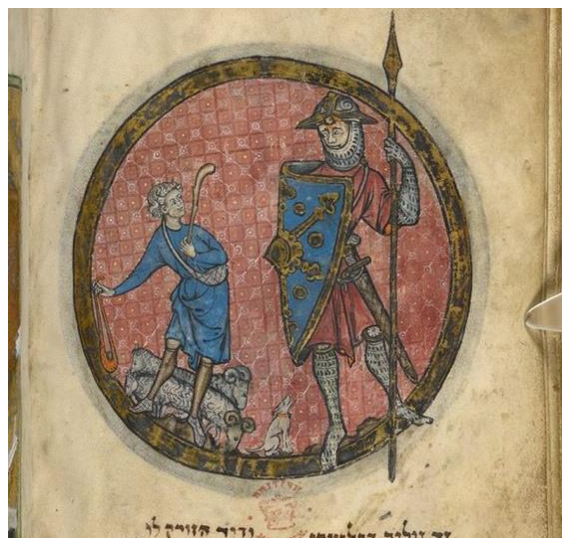 זה גולית הפלישתי ודוד הזורק לו